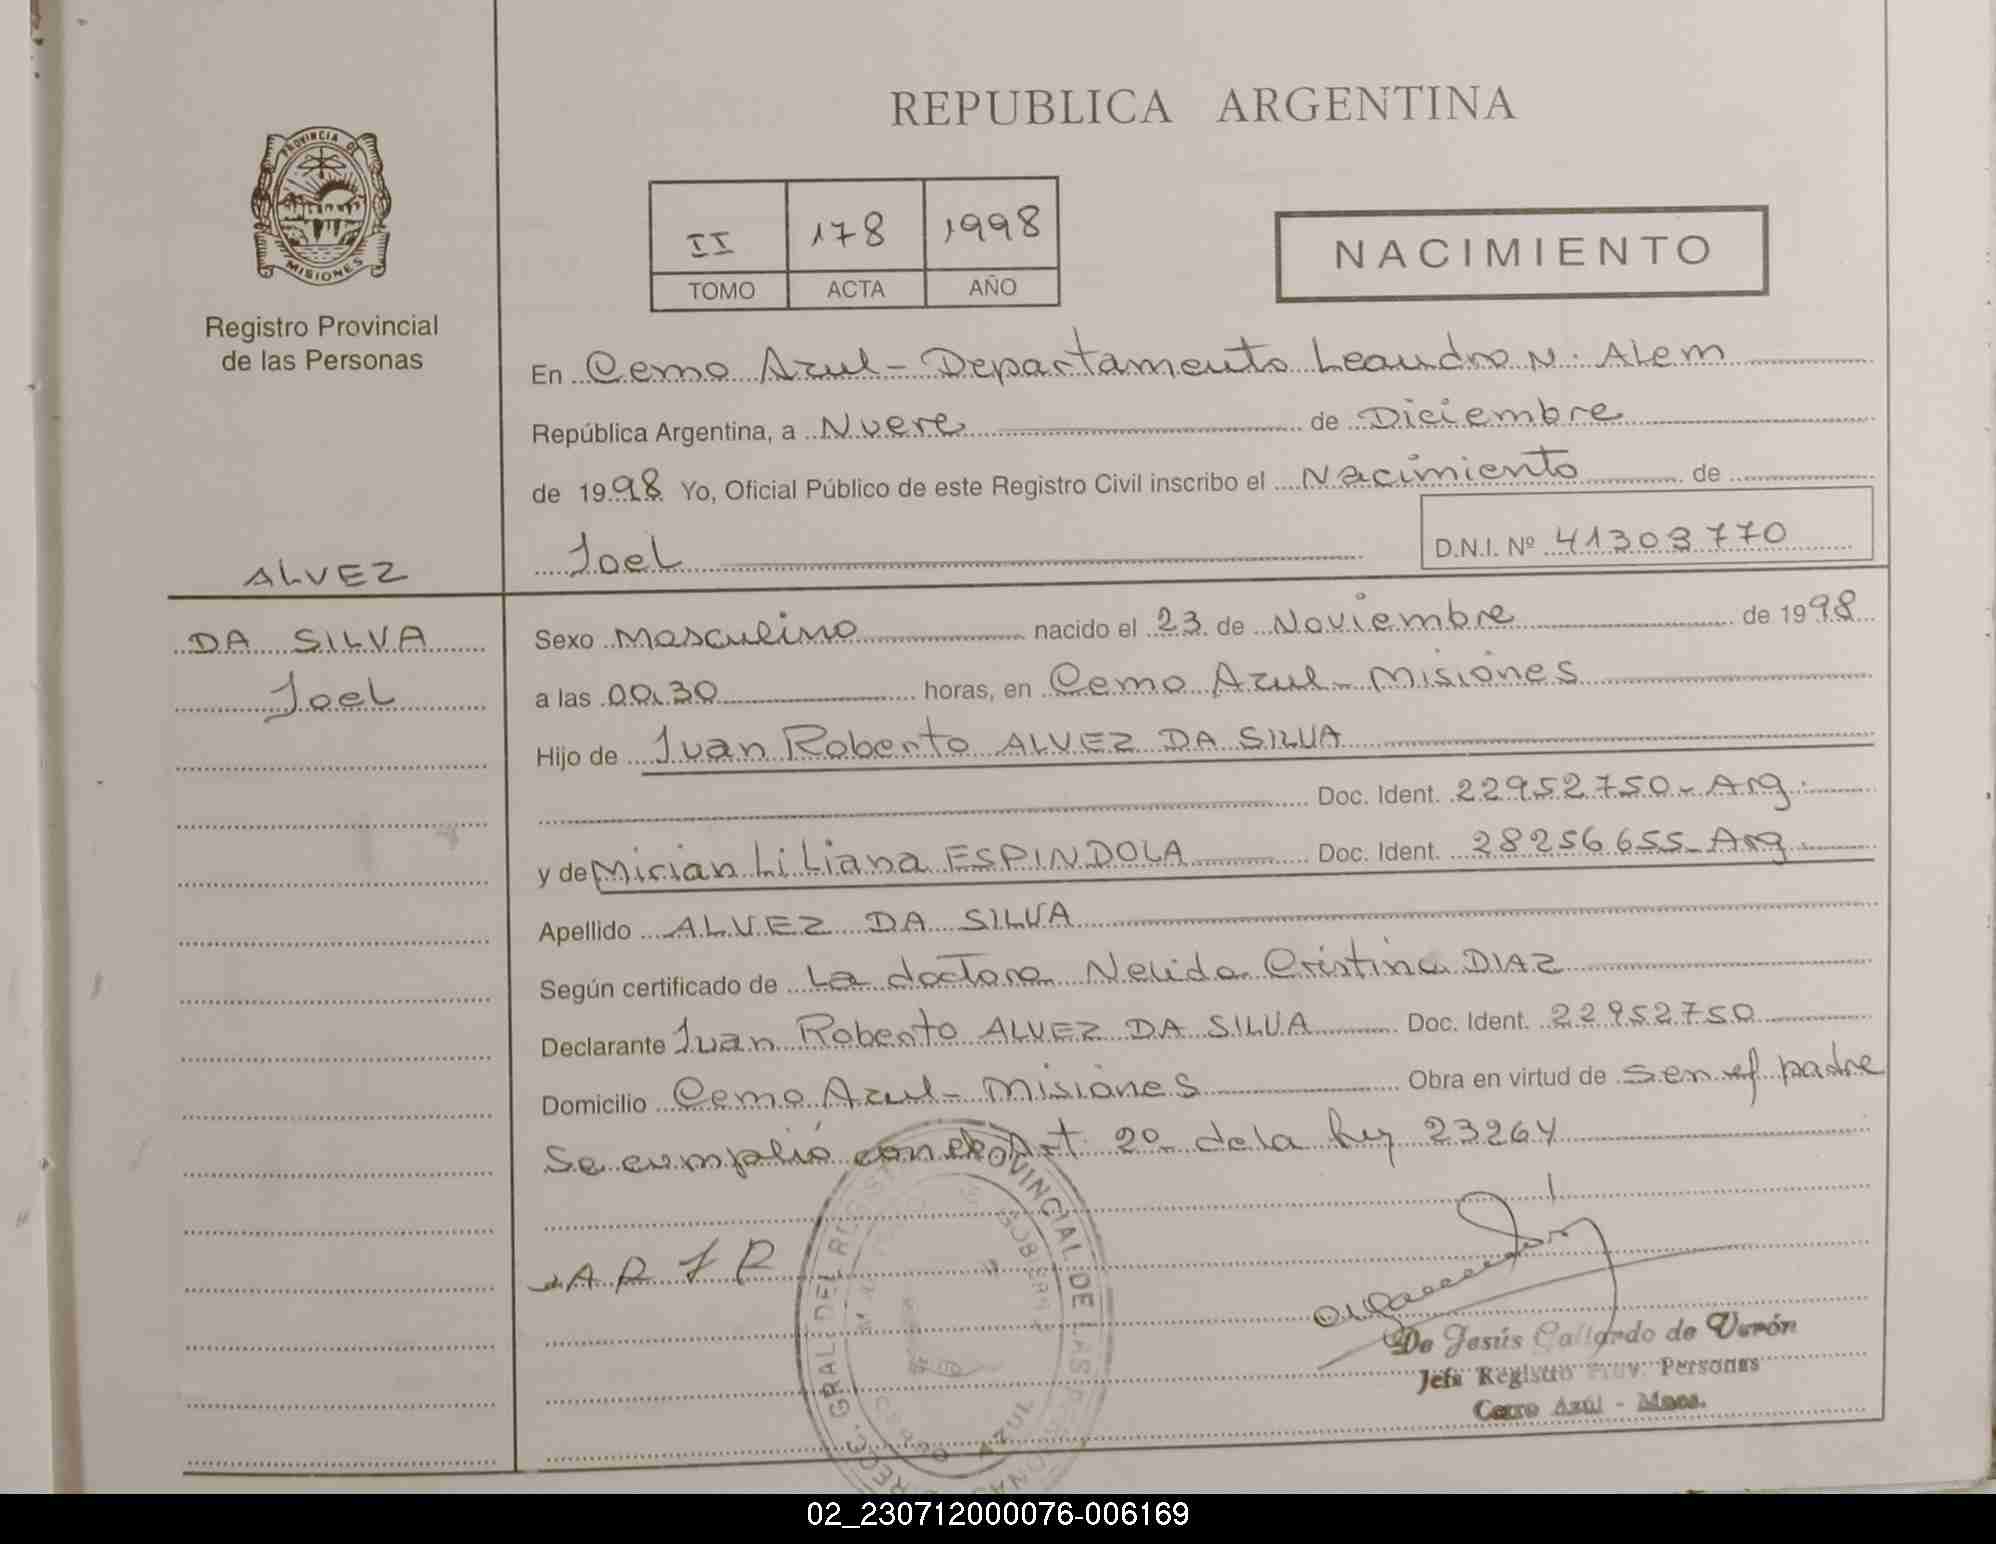 REPUBLICA ARGENTINA
PROVINCIA DE MISIONES
Registro Provincial
de las Personas
II 178 1998
TOMO ACTA AÑO
NACIMIENTO
En Cerro Azul - Departamento Leandro N. Alem
República Argentina, a Nueve de Diciembre
de 1998 Yo, Oficial Público de este Registro Civil inscribo el Nacimiento de
Joel
D.N.I. Nº 41303770
ALVEZ
DA SILVA
Joel
Sexo Masculino nacido el 23 de Noviembre de 1998
a las 00.30 horas, en Cerro Azul - Misiones
Hijo de Juan Roberto ALVEZ DA SILVA
Doc. Ident. 22952750 - Arg.
y de Mirian Liliana ESPINDOLA Doc. Ident. 28256655 - Arg.
Apellido ALVEZ DA SILVA
Según certificado de La doctora Nelida Cristina DIAZ
Declarante Juan Roberto ALVEZ DA SILVA Doc. Ident. 22952750
Domicilio Cerro Azul - Misiones Obra en virtud de ser el padre
Se cumplió con el Art. 2º de la Ley 23264
DIREC. GRAL DEL REGISTRO PROVINCIAL DE LAS PERSONAS
CERRO AZUL
De Jesús Gallardo de Verón
Jefa Registro Prov. Personas
Cerro Azul - Mnes.
02_230712000076-006169